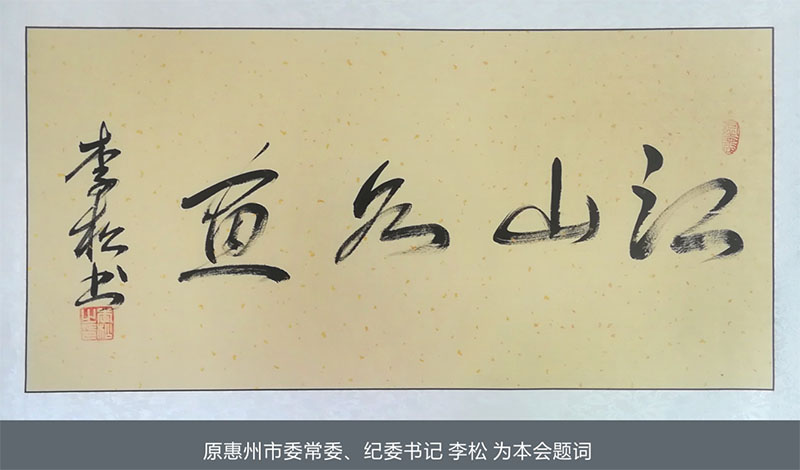 江山如画
李松书
原惠州市委常委、纪委书记 李松 为本会题词